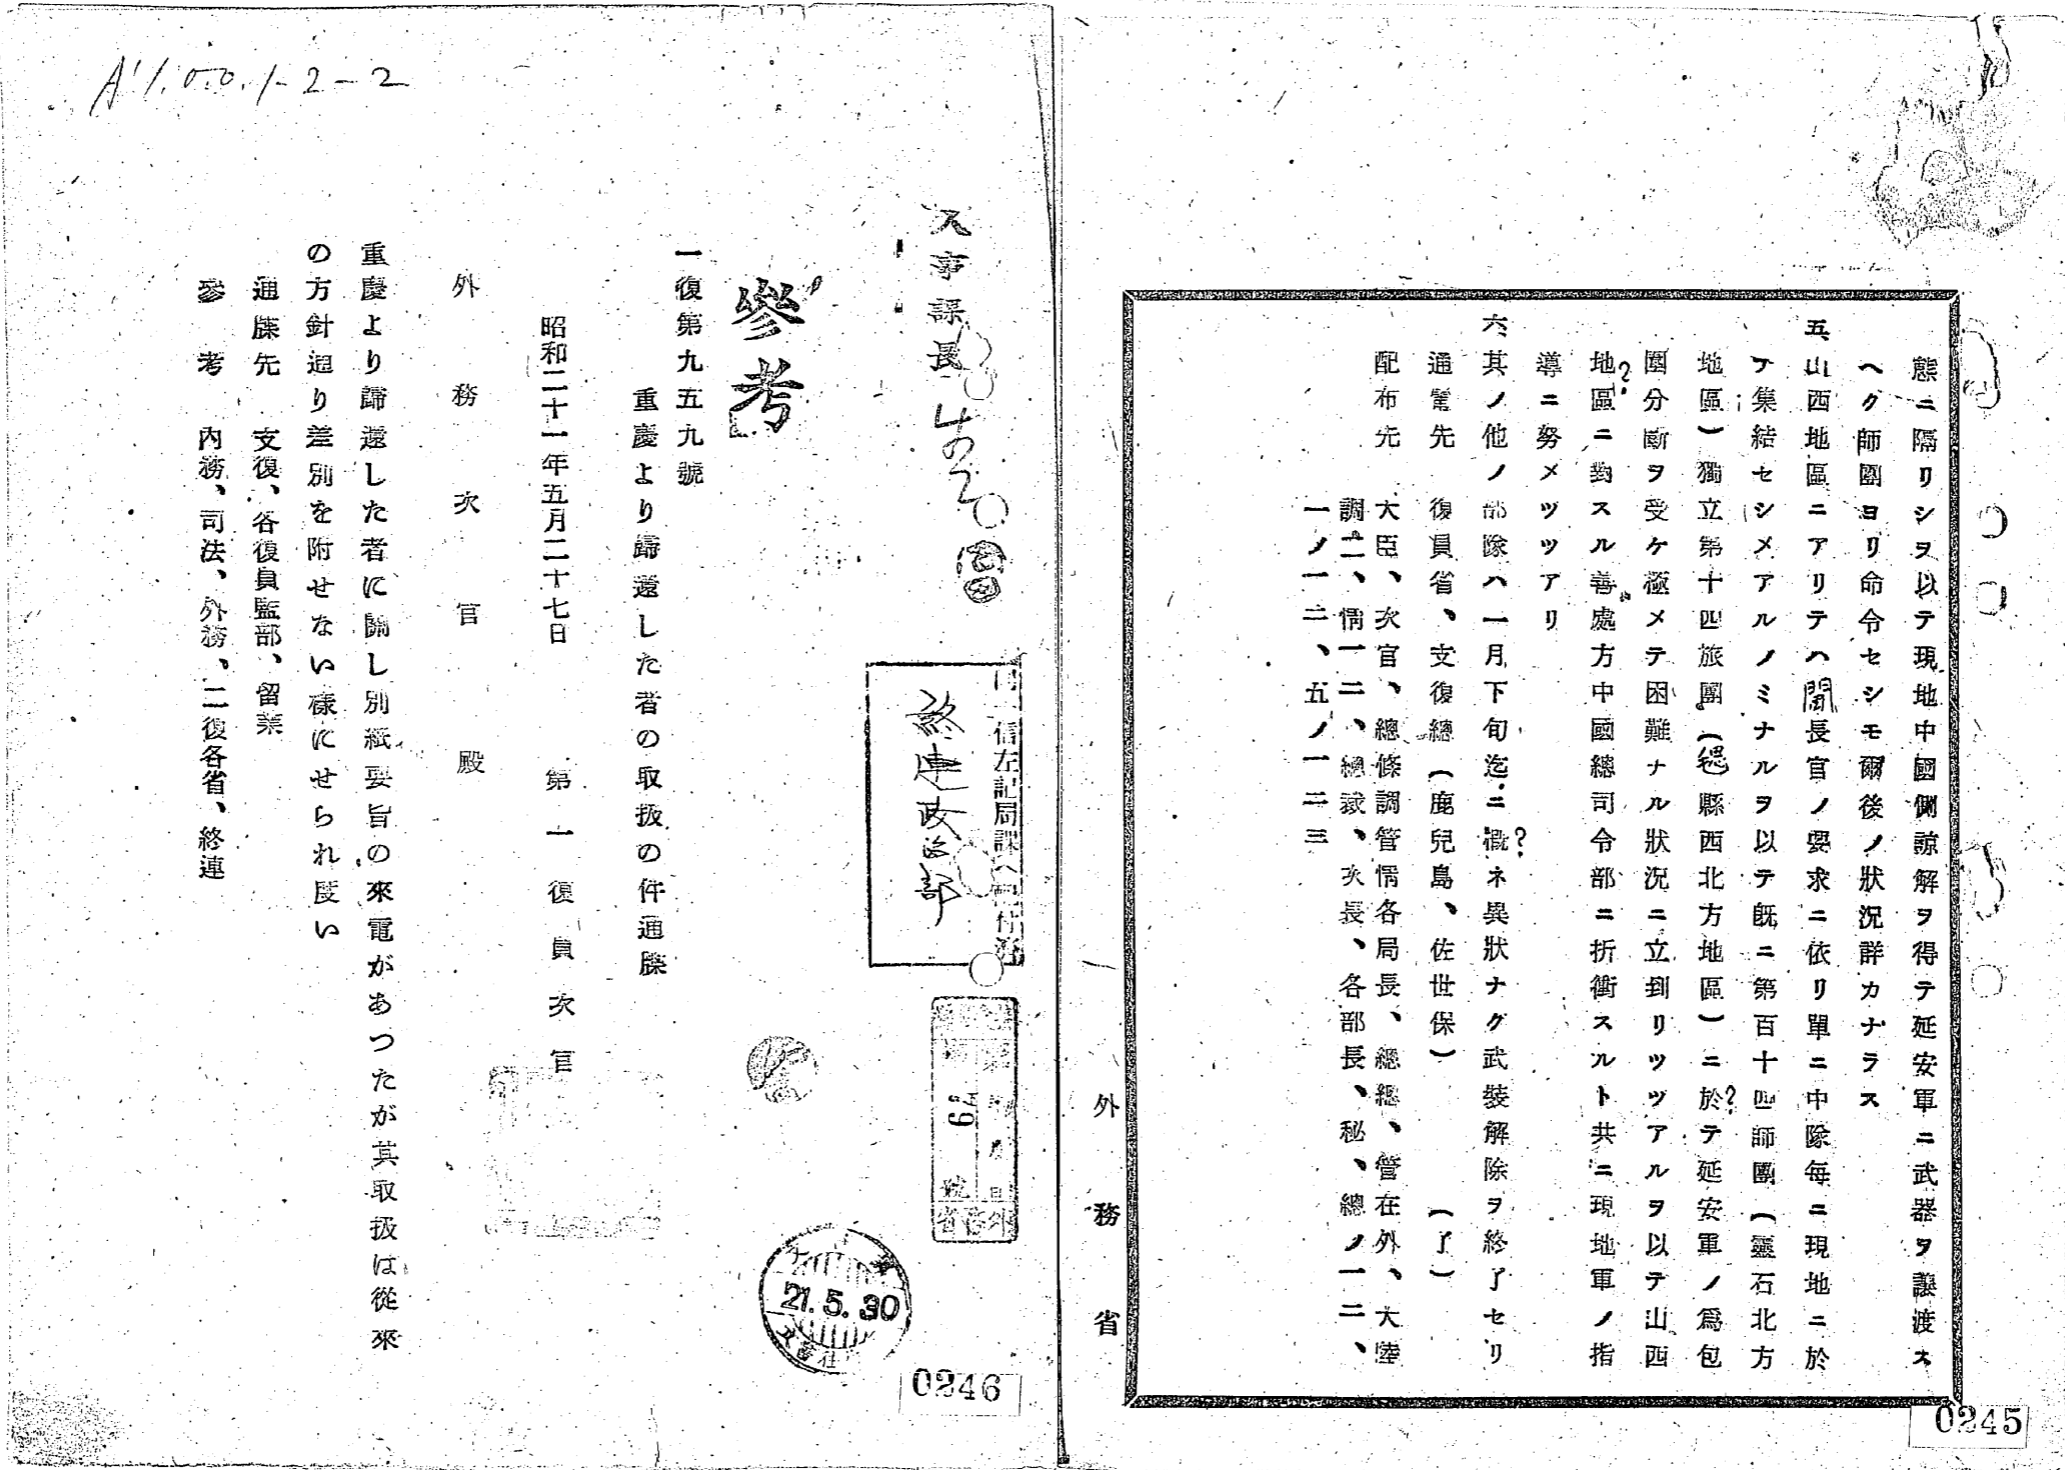 態ニ隔リシヲ以テ現地中國側諒解ヲ得テ延安軍ニ武器ヲ讓渡ス
ヘク師團ヨリ命令セシモ爾後ノ狀況詳カナラス
五、山西地區ニアリテハ閻長官ノ要求ニ依リ單ニ中隊每ニ現地ニ於
テ集結セシメアルノミナルヲ以テ既ニ第百十四師團(靈石北方
地區)獨立第十四旅團(縣西北方地區)ニ於テ延安軍ノ爲包
圍分斷ヲ受ケ極メテ困難ナル狀況ニ立到リツツアルヲ以テ山西
地區ニ對スル善處方中國總司令部ニ折衝スルト共ニ現地軍ノ指
導ニ努メツツアリ
六、其ノ他ノ部隊ハ一月下旬迄ニ概ネ異狀ナク武裝解除ヲ終了セリ
通電先 復員省、支復總(鹿兒島、佐世保) (了)
配布先 大臣、次官、總條調管情各局長、總總、管在外、大陸
調二、情一二、總裁、次長、各部長、秘、總ノ一二、
一ノ一二、五ノ一二三
外務省
0245
A'1.0.0.1-2-2
人事課長
終連政治部
參考
一復第九五九號
重慶より歸還した者の取扱の件通牒
昭和二十一年五月二十七日
第一復員次官
外務次官殿
重慶より歸還した者に關し別紙要旨の來電があつたが其取扱は從來
の方針通り差別を附せない樣にせられ度い
通牒先 支復、各復員監部、留業
參考 內務、司法、外務、二復各省、終連
21.5.30
0246